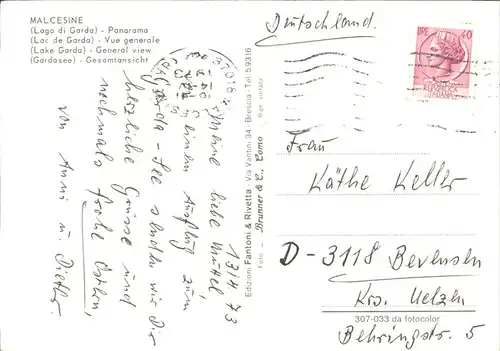 MALCESINE
(Lago di Garda) - Panorama
(Lac de Garda) - Vue generale
(Lake Garda) - General view
(Gardasee) - Gesamtansicht
13/4 73
Meine liebe Muttel!
einem Ausflug zum
Garda-See senden wir Dir
herzliche Grüsse und
nochmals frohe Ostern,
von Anni u. Dieter.
Edizioni Fantoni & Rivetta - Via Vantini 34 - Brescia - Tel. 59316
Foto - Brunner & C., Como - Ripr. vietata
Deutschland.
LIRE 40
Frau
Käthe Keller
D-3118 Bevensen
Krs. Uelzen
307-033 da fotocolor
Behringstr. 5